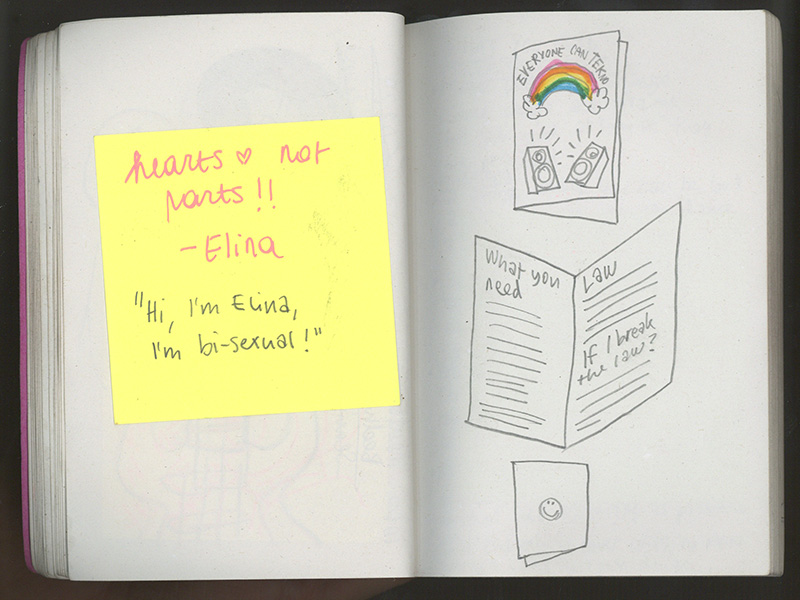 hearts ♡ not
parts!!
-Elina
"Hi, I'm Elina,
I'm bi-sexual!"
EVERYONE CAN TEKNO
What you
need
Law
If I break
the law?